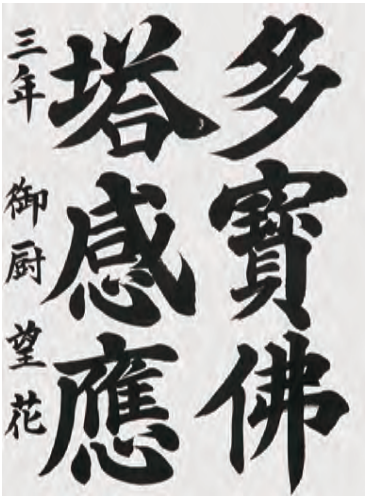 多寳佛
塔感應
三年 御厨望花